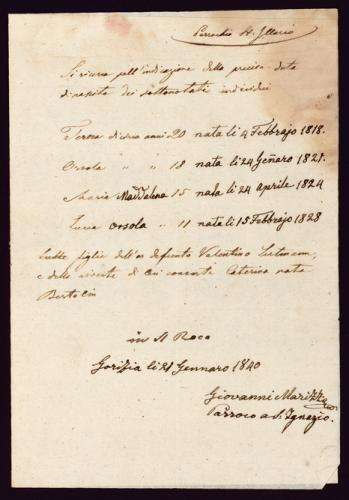 Parrochia St. Illario
Si ricerca sull'indicazione della precisa data
di nascita dei sottonotati individui
Teresa di circa anni 20 nata li 4 Febbrajo 1818.
Orsola " " 18 nata li 24 Gennaro 1821.
Maria Maddalena 15 nata li 24 Aprile 1824
Luca Orsola " 11 nata li 15 Febbrajo 1828
tutte figlie dell'or defunto Valentino
e della vivente di lui consorte Caterina nata
Bertolin
in S. Roco
Gorizia li 21 Gennaro 1840
Giovanni Marizza
Parroco a S. Ignazio.